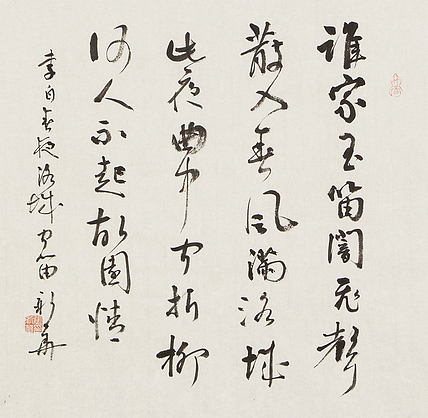 誰家玉笛闇飛聲
散入春風滿洛城
此夜曲中聞折柳
何人不起故園情
李白春夜洛城聞笛 彩華